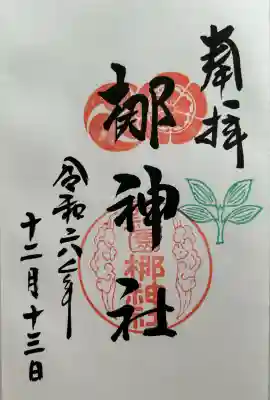 奉拝
梛神社
令和六年
十二月十三日
梛神社